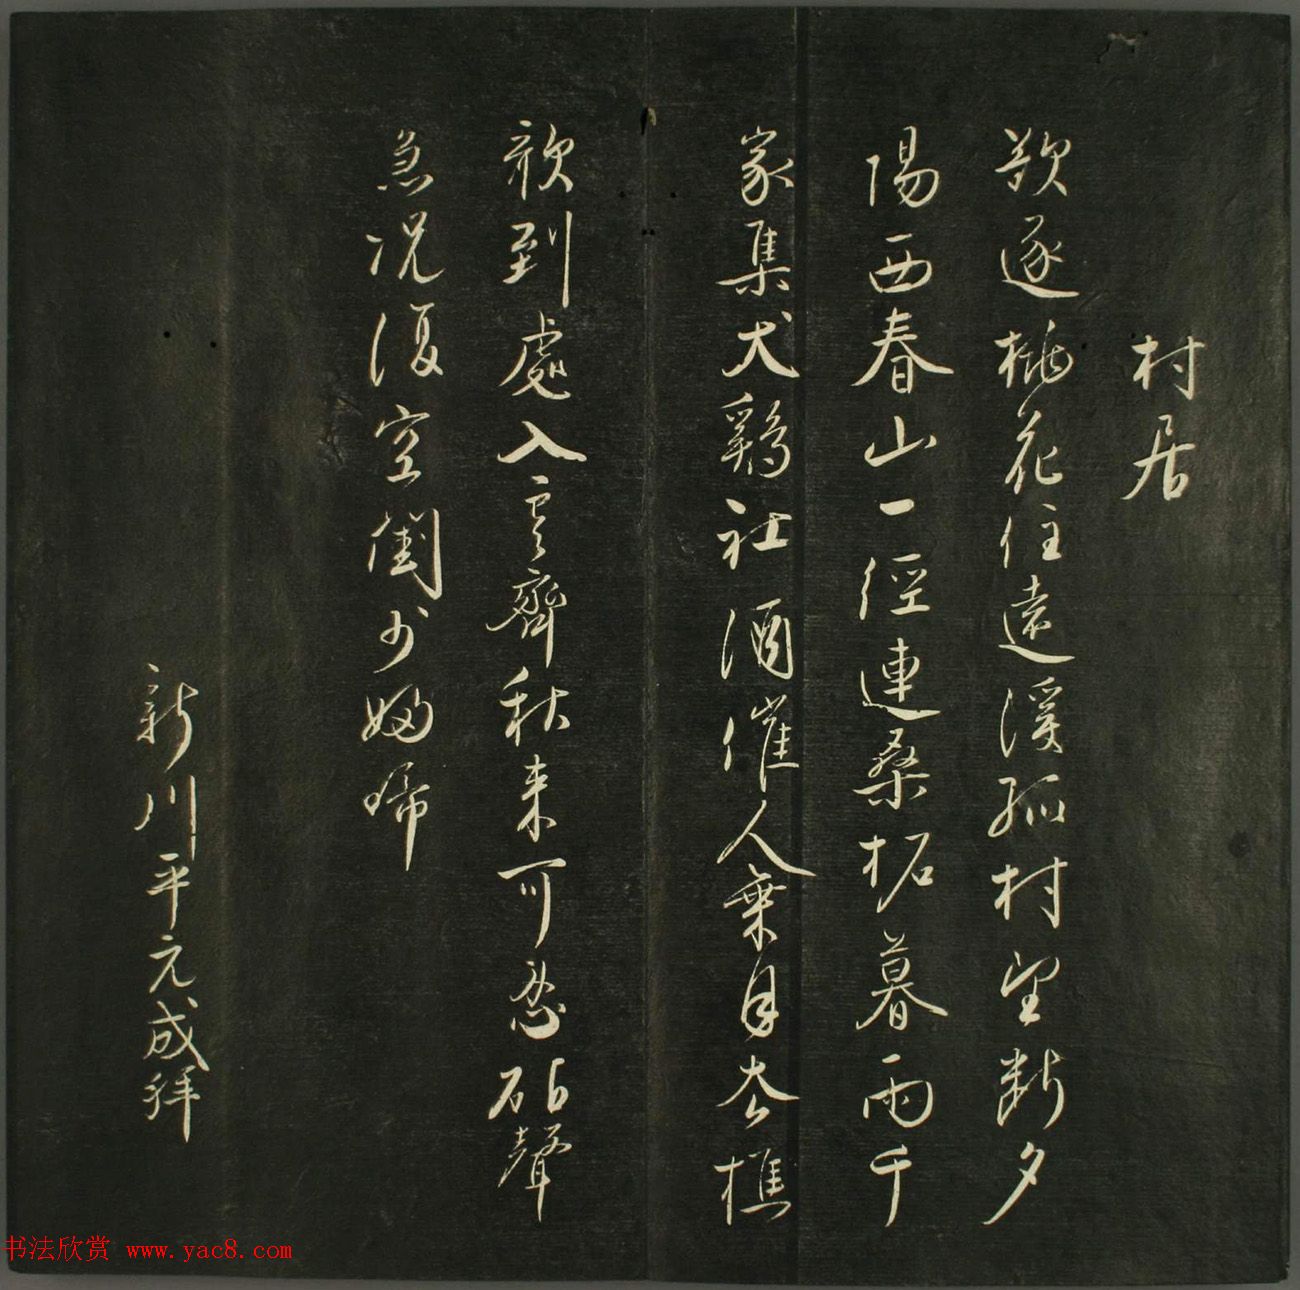 村居
欲逐桃花住遠溪孤村望断夕
陽西春山一徑連桑柘暮雨千
家集犬鷄社酒催人乗月去樵
歌到處入雲齊秋来可忍砧聲
急况復空閨少婦啼
新川平元成拜
书法欣赏 www.yac8.com